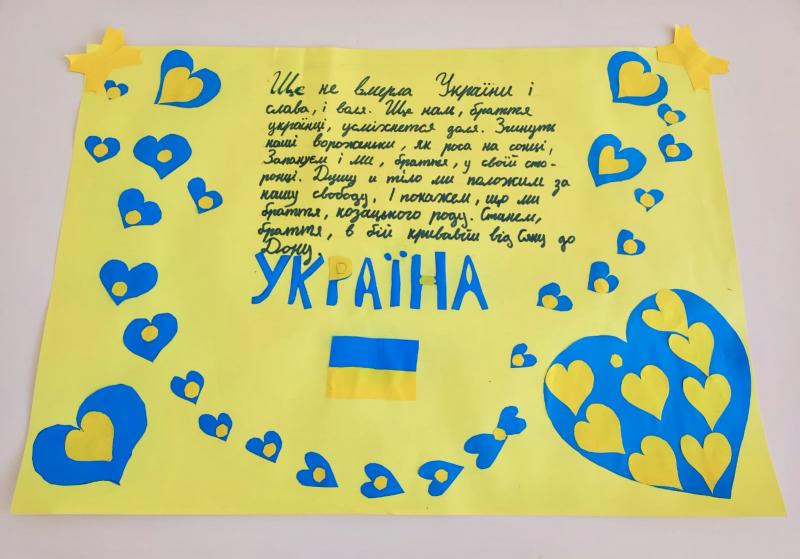 Ще не вмерла України і
слава, і воля. Ще нам, браття
українці, усміхнется доля. Згинуть
наші вороженьки, як роса на сонці,
Запануєм і ми, браття, у своїй сто-
ронці. Душу и тіло ми положим за
нашу свободу, І покажем, що ми
браття, козацького роду. Станем,
браття, в бій кривавий від Сяну до
Дону.
УКРАЇНА